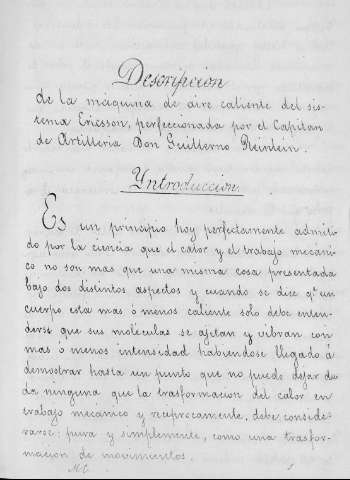 Descripcion
de la máquina de aire caliente del sis-
tema Ericsson, perfeccionada por el Capitan
de Artilleria Don Guillermo Reinlein.
Yntroduccion.
Es un principio hoy perfectamente admiti-
do por la ciencia que el calor y el trabajo mecáni-
co no son mas que una misma cosa presentada
bajo dos distintos aspectos y cuando se dice qe un
cuerpo esta mas ó menos caliente solo debe enten-
derse que sus moléculas se ajitan y vibran con
mas ó menos intensidad habiendose llegado á
demostrar hasta un punto que no puede dejar du-
da ninguna que la trasformacion del calor en
trabajo mecánico y reciprocamente, debe conside-
rarse: pura y simplemente, como una trasfor-
macion de movimientos.